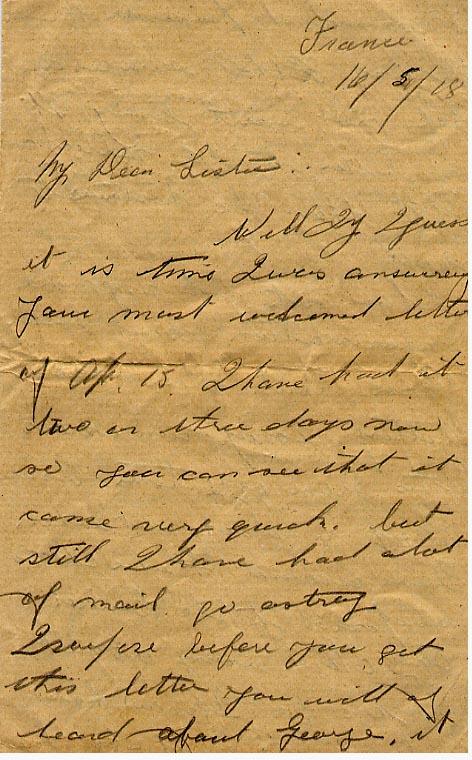 France
16/5/18
My Dear Sister:.
Well I guess
it is time I was answering
your most welcomed letter
of Apr. 15. I have had it
two or three days now
so you can see that it
came very quick. but
still I have had alot
of mail go astray
I supose before you get
this letter you will of
heard about George, it